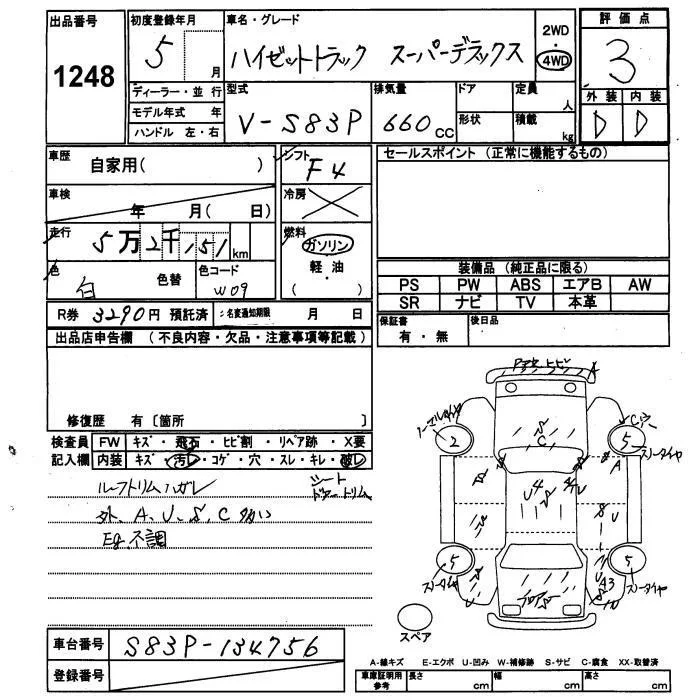 出品番号 初度登録年月 車名・グレード 2WD 評価点
1248 5 月 ハイゼットトラック スーパーデラックス 4WD 3
ディーラー・並行 型式 排気量 ドア 定員 人 外装 内装
モデル年式 年 V-S83P 660 CC 形状 積載 kg D D
ハンドル 左・右
車歴 自家用( ) シフト F4 セールスポイント (正常に機能するもの)
車検 年 月( 日) 冷房
走行 5万2千151 km 燃料 ガソリン
軽油
( )
色 白 色替 色コード W09
装備品 (純正品に限る)
PS PW ABS エアB AW
SR ナビ TV 本革
R券 3290円 預託済 ニ名変通知期限 月 日 保証書 有・無 後日品
出品店申告欄 (不良内容・欠品・注意事項等記載)
修復歴 有〔箇所 〕
検査員 FW キズ・飛石・ヒビ割・リペア跡・X要
記入欄 内装 キズ・汚レ・コゲ・穴・スレ・キレ・破レ
ルーフトリムハガレ シート
ドアートリム
外、A、U、S、C多い
Eg.不調
ノーマルタイヤ
2 5
スリータイヤ
5 5
スペア
車台番号 S83P-134756
登録番号
A-線キズ E-エクボ U-凹み W-補修跡 S-サビ C-腐食 XX-取替済
車庫証明用参考 長さ cm 幅 cm 高さ cm